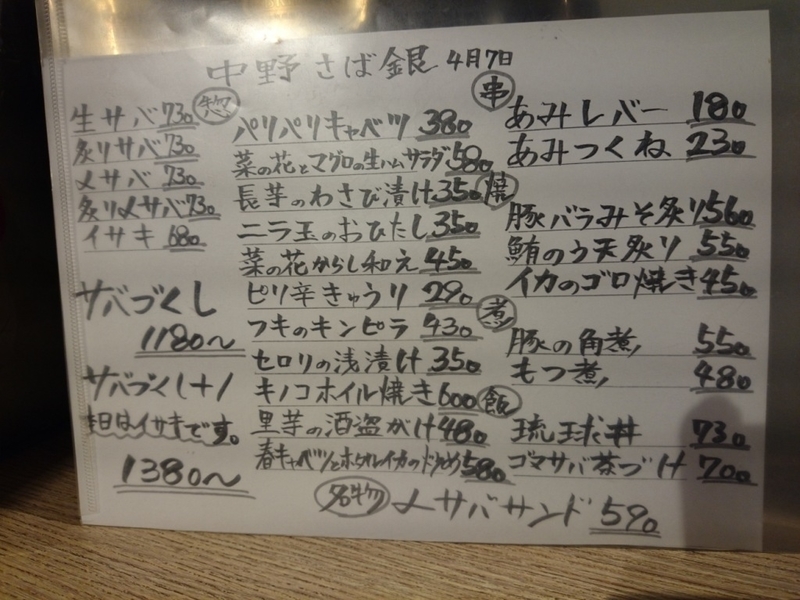 中野 さば銀 4月7日
生サバ 730
炙りサバ 730
〆サバ 730
炙り〆サバ 730
イサキ 680
サバづくし
1180〜
サバづくし+1
本日はイサキです。
1380〜
惣
パリパリキャベツ 380
菜の花とマグロの生ハムサラダ 580
長芋のわさび漬け 350
ニラ玉のおひたし 350
菜の花からし和え 450
ピリ辛きゅうり 290
フキのキンピラ 430
セロリの浅漬け 350
キノコホイル焼き 600
里芋の酒盗がけ 480
春キャベツとホタルイカの炒め 580
串
あみレバー 180
あみつくね 230
焼
豚バラみそ炙り 560
鮪のう天炙り 550
イカのゴロ焼き 450
煮
豚の角煮 550
もつ煮 480
飯
琉球丼 730
ゴマサバ茶づけ 700
名物 〆サバサンド 590